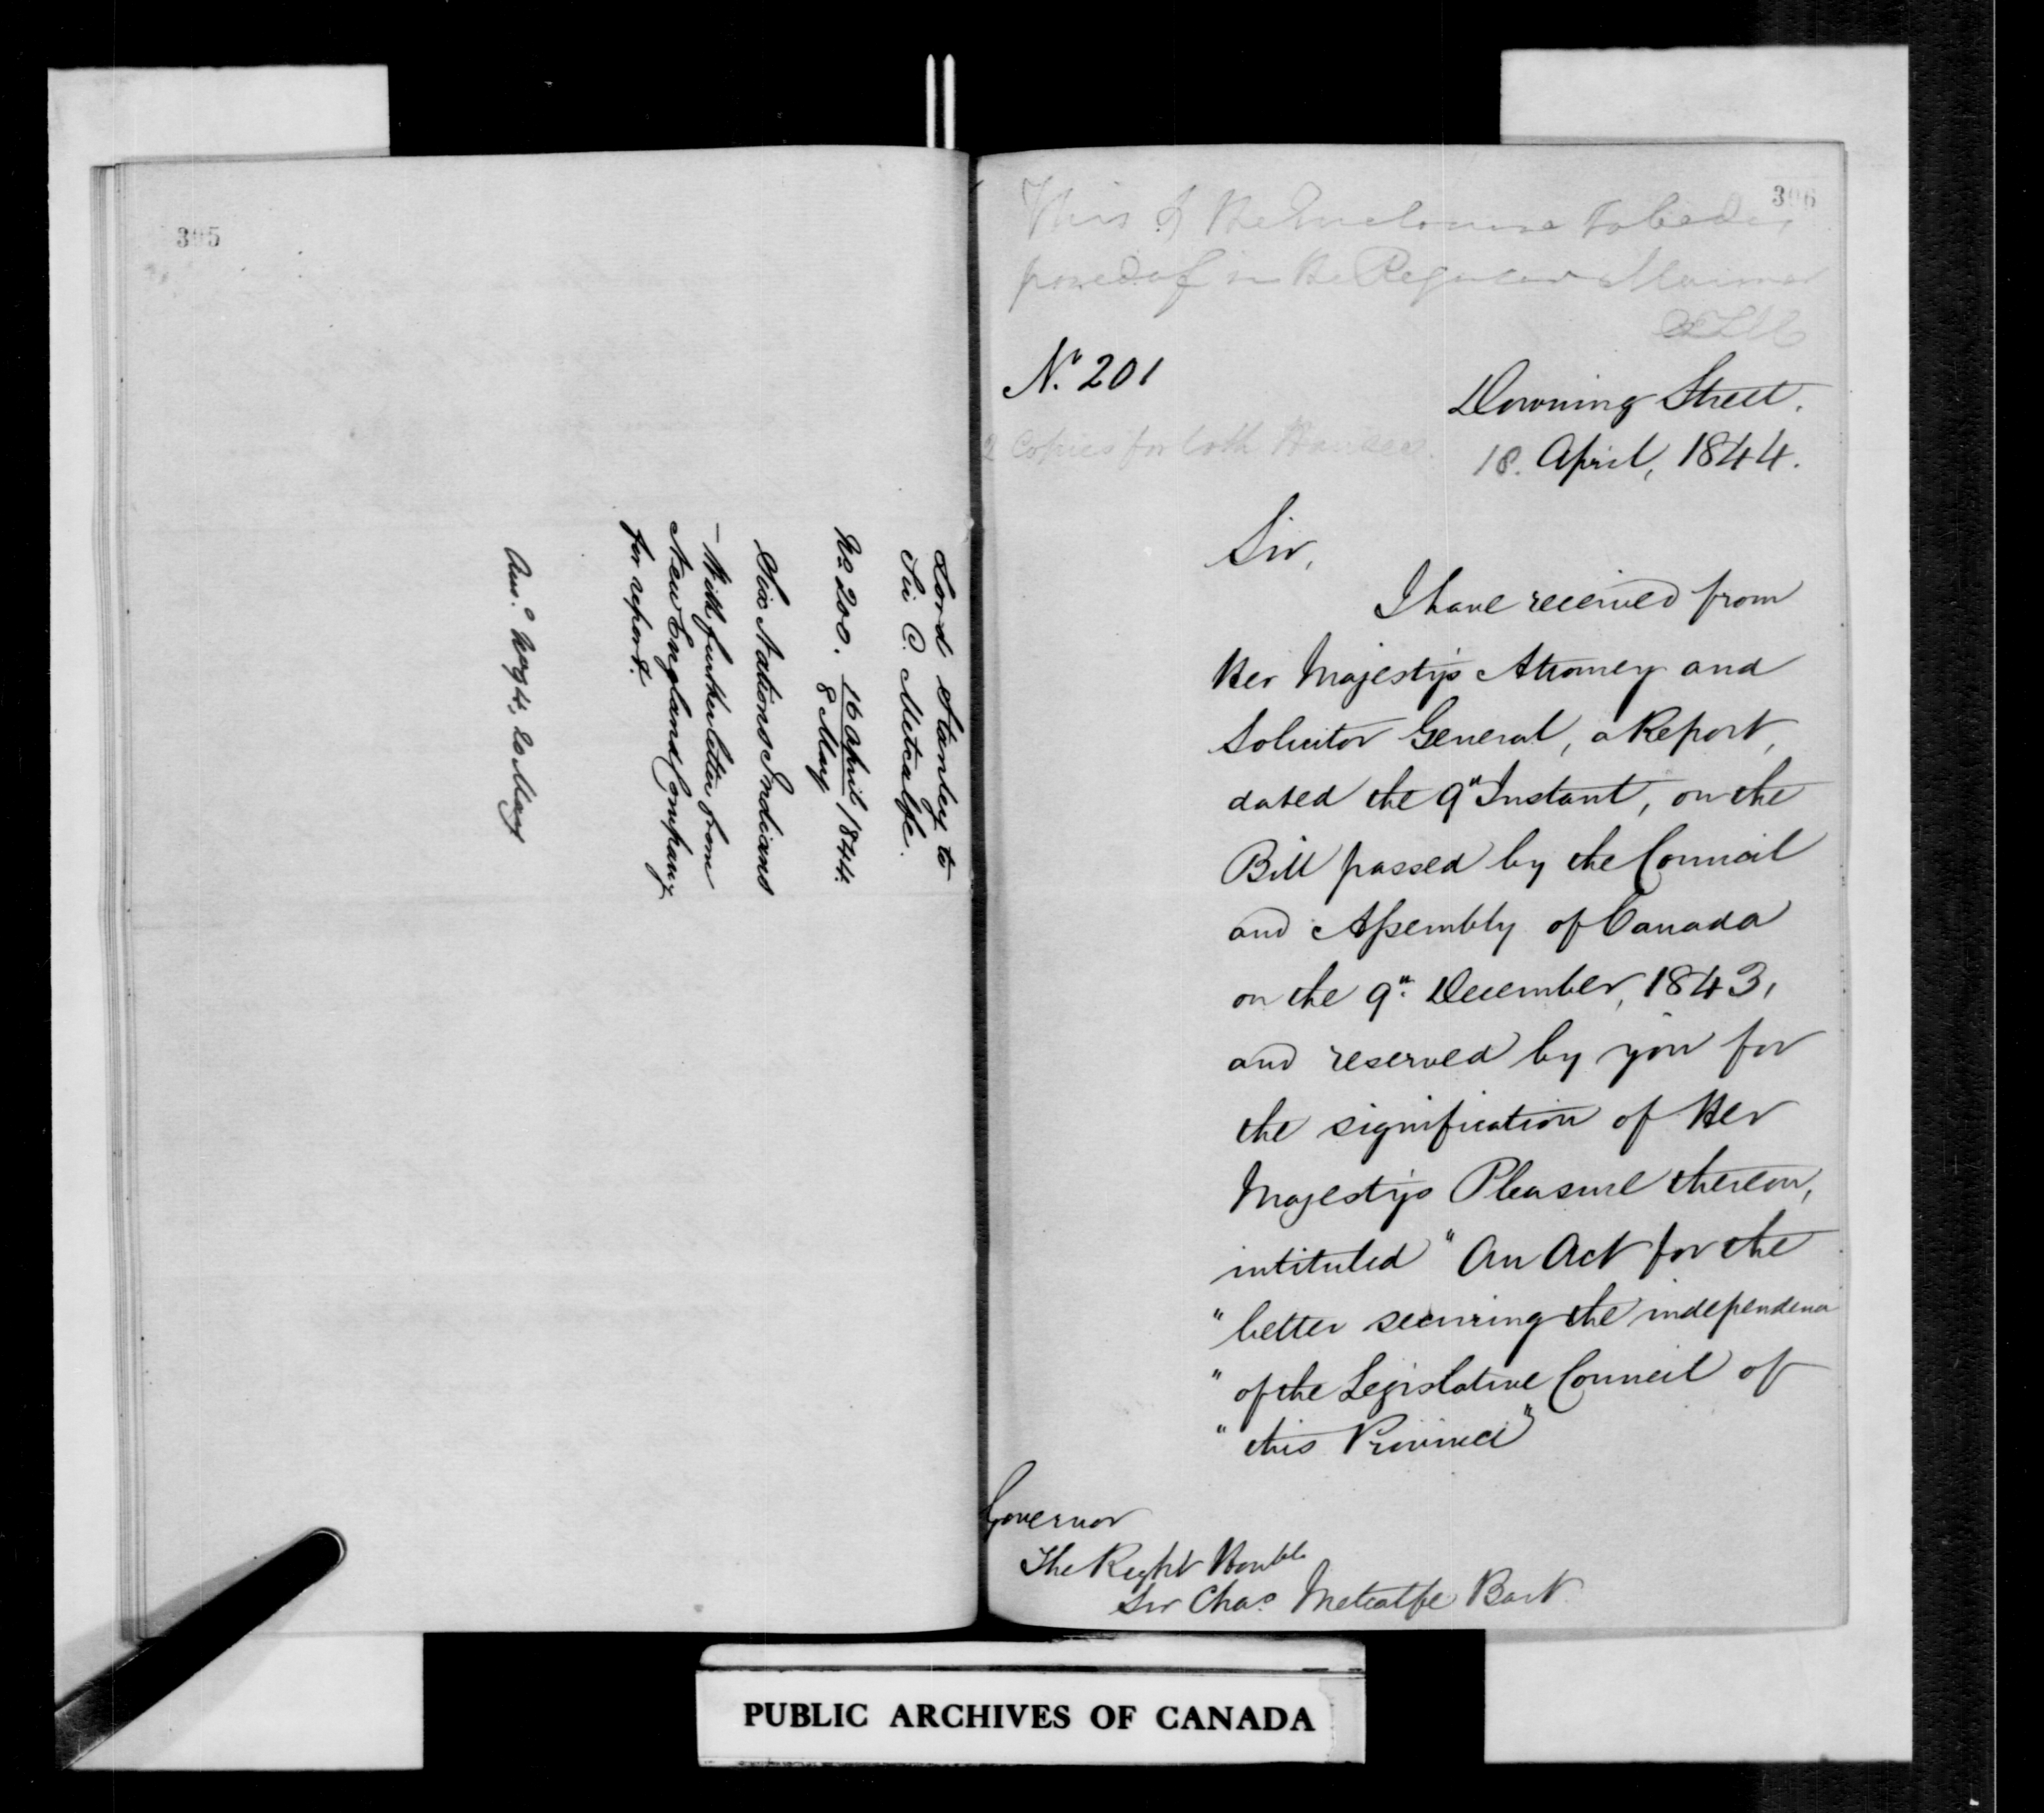 395
Lord Stanley to
Sir C. Metcalfe.
No. 200. 16 April / 8 May 1844.
Six Nations Indians
– With further letter from
New England Company
for report.
20 May
396
This & the Enclosure to be dis
posed of in the Regular Manner
No. 201
Downing Street.
2 Copies for both Houses.
18. April, 1844.
Sir,
I have received from
Her Majesty's Attorney and
Solicitor General, a Report,
dated the 9th Instant, on the
Bill passed by the Council
and Assembly of Canada
on the 9th December, 1843,
and reserved by you for
the signification of Her
Majesty's Pleasure thereon,
intituled "An Act for the
"better securing the independence
"of the Legislative Council of
"this Province"
Governor
The Right Honble
Sir Chas. Metcalfe Bart
PUBLIC ARCHIVES OF CANADA